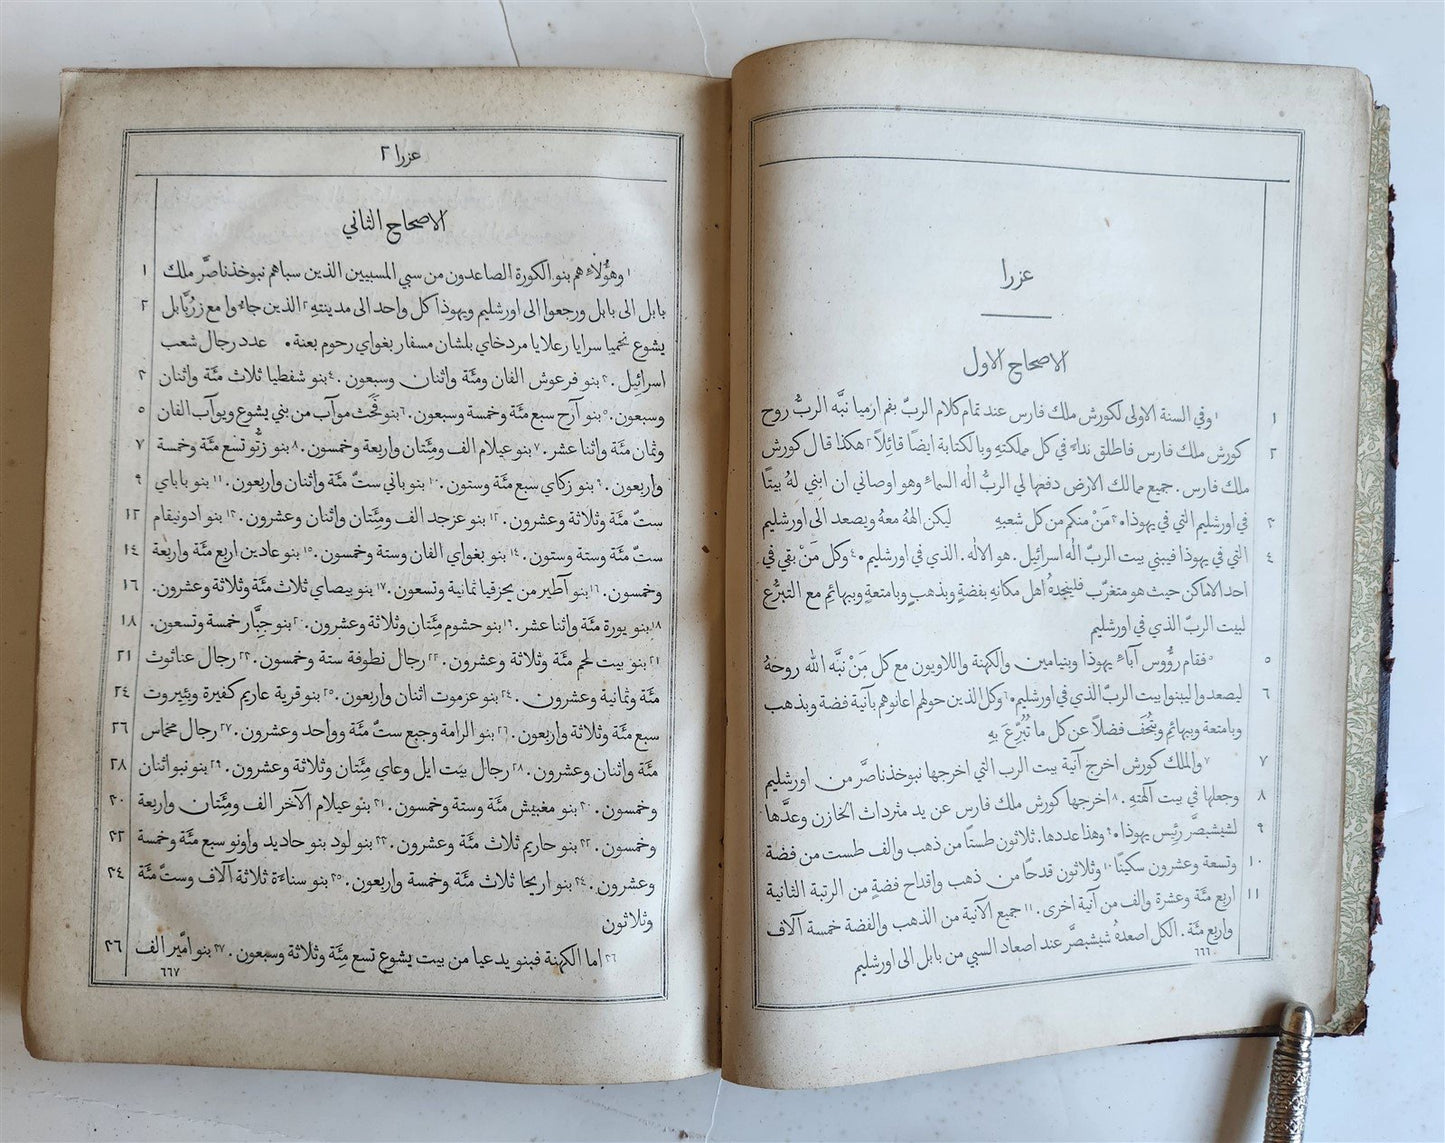 عزرا
الاصحاح الاول
١ ١ وفي السنة الاولى لكورش ملك فارس عند تمام كلام الربّ بفم ارميا نبَّه الربُّ روح
٢ كورش ملك فارس فاطلق نداءً في كل مملكتهِ وبالكتابة ايضًا قائلاً ٢ هكذا قال كورش
ملك فارس. جميع ممالك الارض دفعها لي الربُّ اله السماء وهو اوصاني ان ابني لهُ بيتًا
٣ في اورشليم التي في يهوذا. ٣ مَنْ منكم من كل شعبهِ ليكن الههُ معهُ ويصعد الى اورشليم
٤ التي في يهوذا فيبني بيت الربّ اله اسرائيل. هو الاله. الذي في اورشليم. ٤ وكل مَنْ بقي في
احد الاماكن حيث هو متغرّب فلينجدهُ اهل مكانهِ بفضةٍ وبذهبٍ وبامتعةٍ وببهائم مع التبرُّع
لبيت الربّ الذي في اورشليم
٥ ٥ فقام رؤُوس آباءِ يهوذا وبنيامين والكهنة واللاويون مع كل مَنْ نبَّه الله روحهُ
٦ ليصعدوا ليبنوا بيت الربّ الذي في اورشليم. ٦ وكل الذين حولهم اعانوهم بآنية فضة وبذهب
وبامتعة وببهائم وبتُحَف فضلاً عن كل ما تُبُرِّعَ بهِ
٧ ٧ والملك كورش اخرج آنية بيت الرب التي اخرجها نبوخذناصَّر من اورشليم
٨ وجعلها في بيت آلهتهِ. ٨ اخرجها كورش ملك فارس عن يد مثردات الخازن وعدَّها
٩ لشيشبصَّر رئيس يهوذا. ٩ وهذا عددها. ثلاثون طستًا من ذهب والف طست من فضة
١٠ وتسعة وعشرون سكينًا ١٠ وثلاثون قدحًا من ذهب واقداح فضةٍ من الرتبة الثانية
١١ اربع مئَة وعشرة والف من آنية اخرى. ١١ جميع الآنية من الذهب والفضة خمسة آلاف
واربع مئَة. الكل اصعدهُ شيشبصَّر عند اصعاد السبي من بابل الى اورشليم
٦٦٦
عزرا ٢
الاصحاح الثاني
١ ١ وهؤُلاءِ هم بنو الكورة الصاعدون من سبي المسبيين الذين سباهم نبوخذناصَّر ملك
٢ بابل الى بابل ورجعوا الى اورشليم ويهوذا كل واحد الى مدينتهِ ٢ الذين جاءُوا مع زرُبَّابل
يشوع نحميا سرايا رعلايا مردخاي بلشان مسفار بغواي رحوم بعنة. عدد رجال شعب
٣ اسرائيل. ٣ بنو فرعوش الفان ومئَة واثنان وسبعون. ٤ بنو شفطيا ثلاث مئَة واثنان
٥ وسبعون. ٥ بنو آرح سبع مئَة وخمسة وسبعون. ٦ بنو فَحَث موآب من بني يشوع ويوآب الفان
٧ وثمان مئَة واثنا عشر. ٧ بنو عيلام الف ومئَتان واربعة وخمسون. ٨ بنو زتُّو تسع مئَة وخمسة
٩ واربعون. ٩ بنو زكاي سبع مئَة وستون. ١٠ بنو باني ستّ مئَة واثنان واربعون. ١١ بنو باباي
١٢ ستّ مئَة وثلاثة وعشرون. ١٢ بنو عزجد الف ومئَتان واثنان وعشرون. ١٣ بنو ادونيقام
١٤ ستّ مئَة وستة وستون. ١٤ بنو بغواي الفان وستة وخمسون. ١٥ بنو عادين اربع مئَة واربعة
١٦ وخمسون. ١٦ بنو آطير من يحزقيا ثمانية وتسعون. ١٧ بنو بيصاي ثلاث مئَة وثلاثة وعشرون.
١٨ ١٨ بنو يورة مئَة واثنا عشر. ١٩ بنو حشوم مئَتان وثلاثة وعشرون. ٢٠ بنو جبَّار خمسة وتسعون.
٢١ ٢١ بنو بيت لحم مئَة وثلاثة وعشرون. ٢٢ رجال نطوفة ستة وخمسون. ٢٣ رجال عناثوث
٢٤ مئَة وثمانية وعشرون. ٢٤ بنو عزموت اثنان واربعون. ٢٥ بنو قرية عاريم كفيرة وبئيروت
٢٦ سبع مئَة وثلاثة واربعون. ٢٦ بنو الرامة وجبع ستّ مئَة وواحد وعشرون. ٢٧ رجال مخماس
٢٨ مئَة واثنان وعشرون. ٢٨ رجال بيت ايل وعاي مئَتان وثلاثة وعشرون. ٢٩ بنو نبو اثنان
٣٠ وخمسون. ٣٠ بنو مغبيش مئَة وستة وخمسون. ٣١ بنو عيلام الآخر الف ومئَتان واربعة
٣٢ وخمسون. ٣٢ بنو حاريم ثلاث مئَة وعشرون. ٣٣ بنو لود بنو حاديد واونو سبع مئَة وخمسة
٣٤ وعشرون. ٣٤ بنو اريحا ثلاث مئَة وخمسة واربعون. ٣٥ بنو سناءَة ثلاثة آلاف وستّ مئَة
وثلاثون
٣٦ ٣٦ اما الكهنة فبنو يدعيا من بيت يشوع تسع مئَة وثلاثة وسبعون. ٣٧ بنو امّير الف
٦٦٧